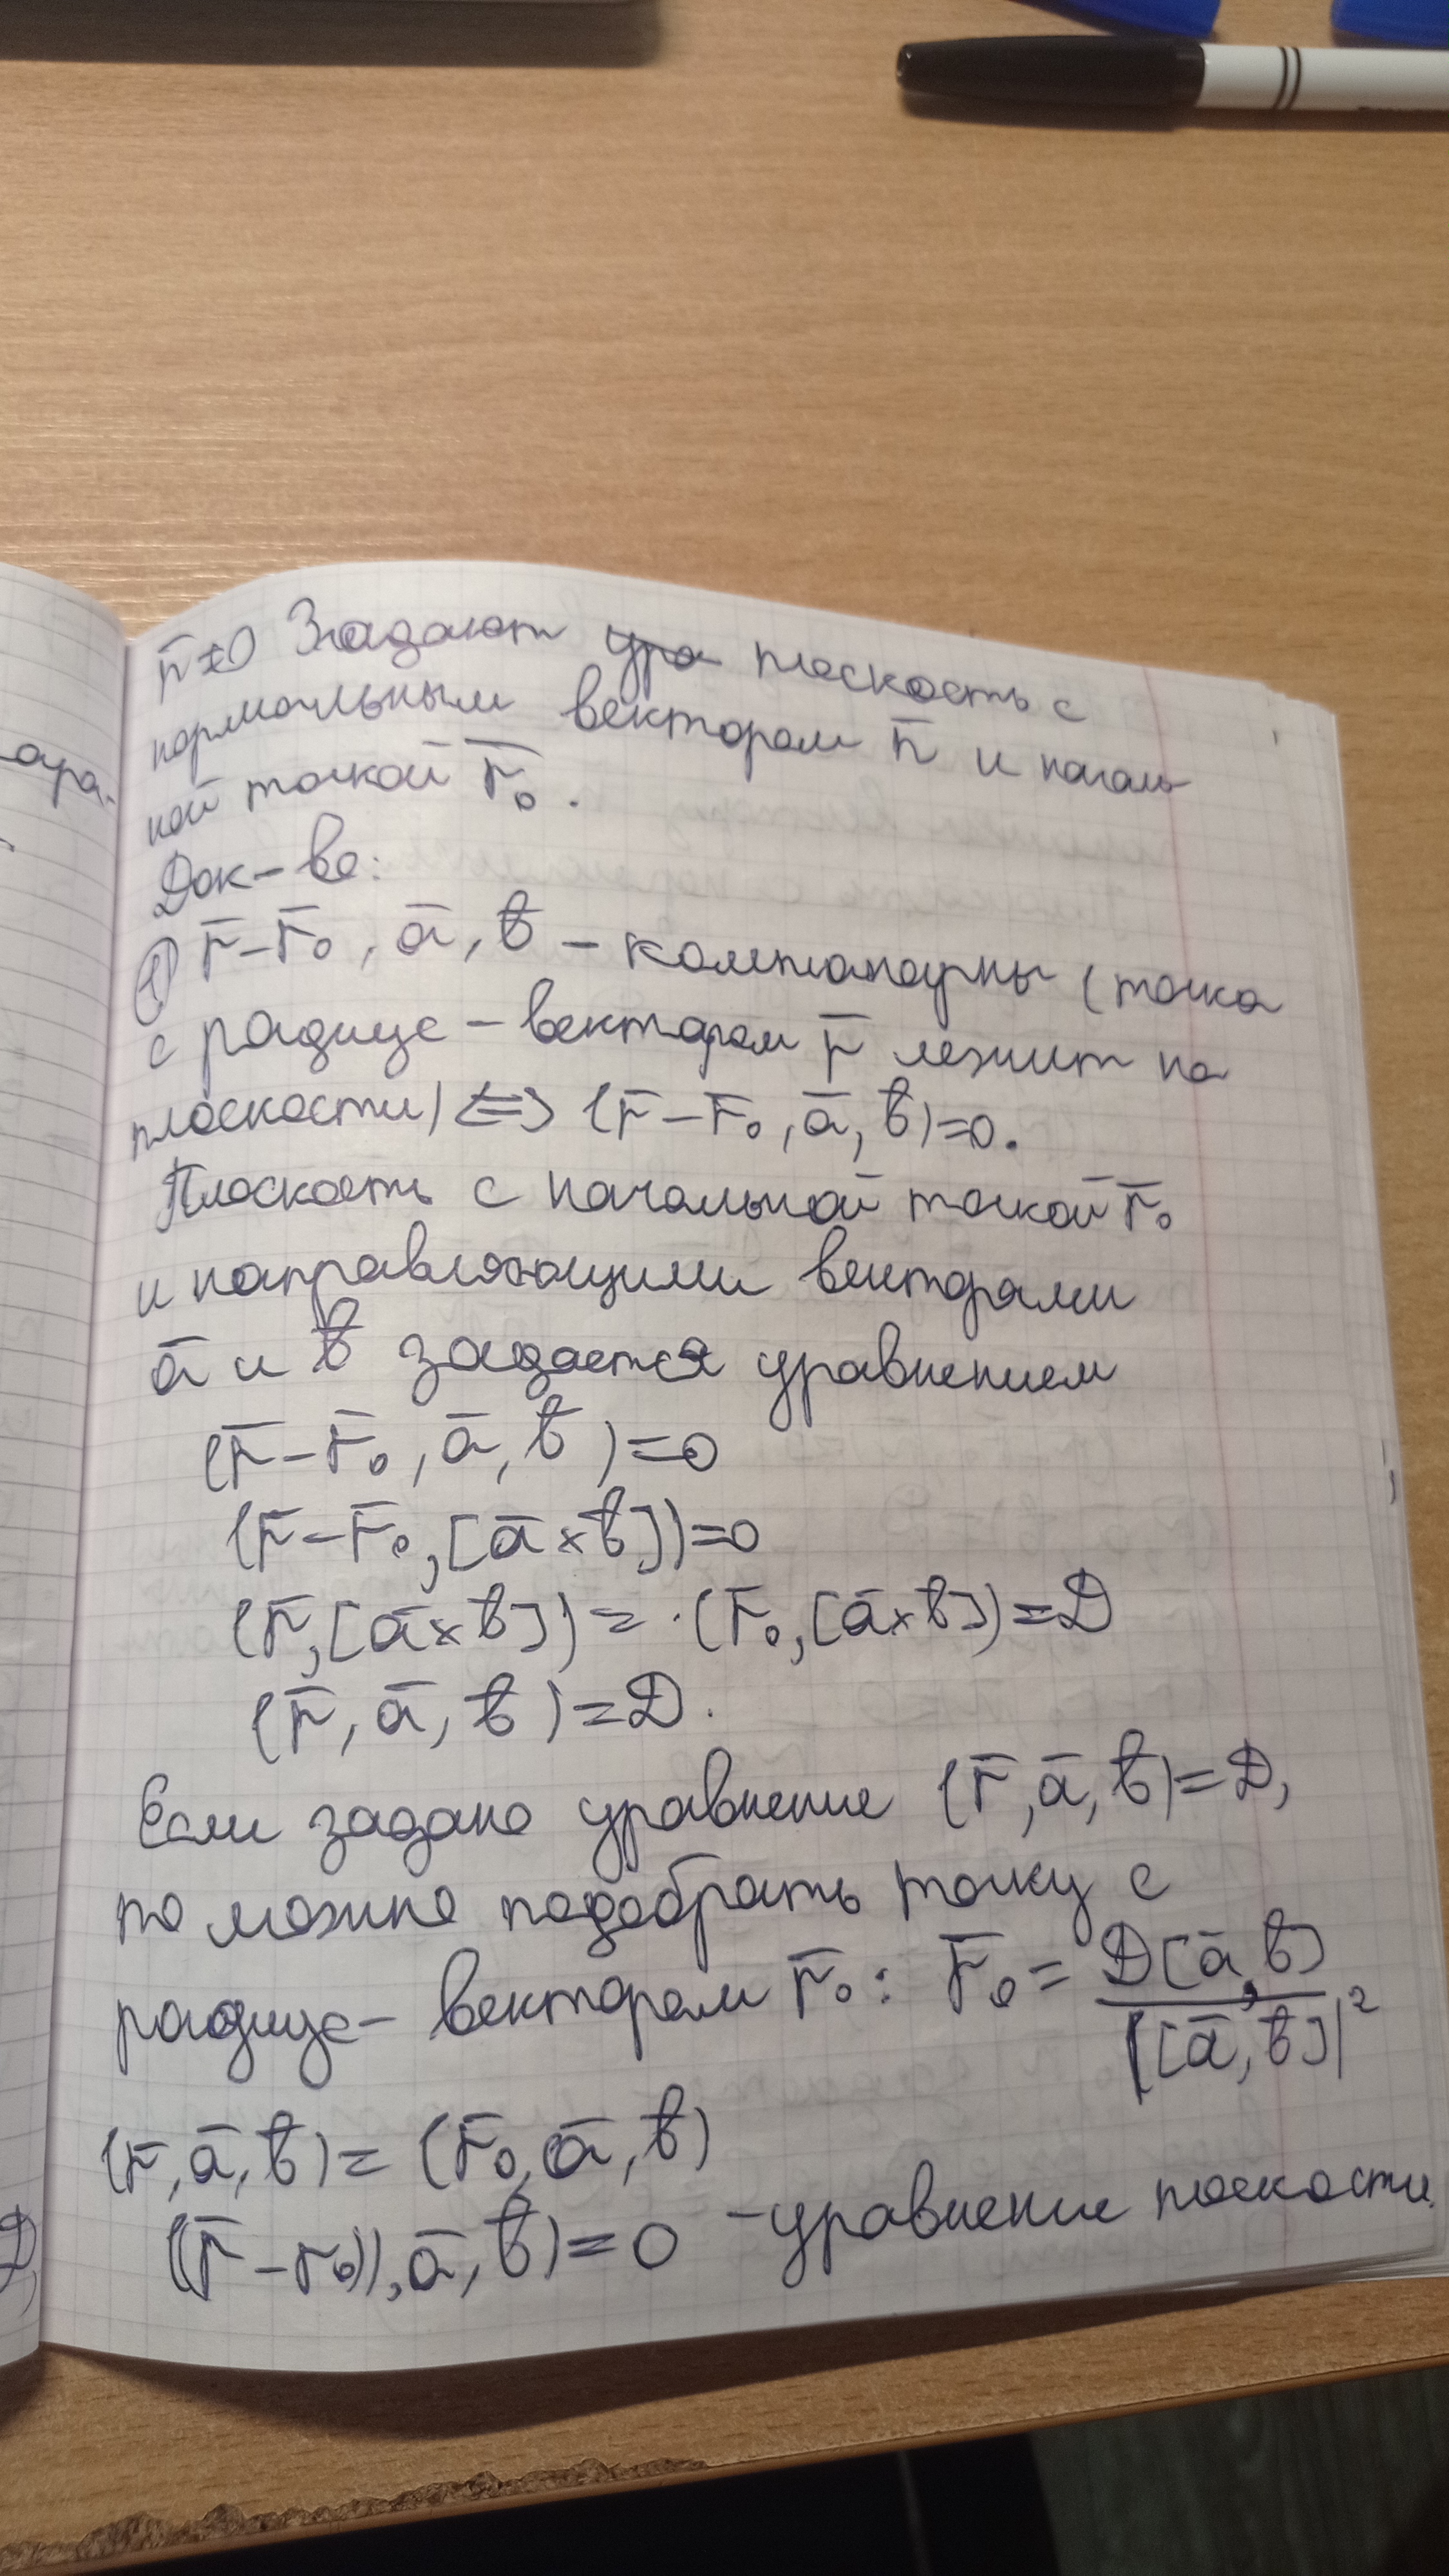 n̄≠0 Задают ура плоскость с
нормальным вектором n̄ и началь
ной точкой r̄₀.
Док-во:
① r̄-r̄₀, ā, b̄ - компланарны (точка
с радиус-вектором r̄ лежит на
плоскости) <=> (r̄-r̄₀, ā, b̄)=0.
Плоскость с начальной точкой r̄₀
и направляющими векторами
ā и b̄ задается уравнением
(r̄-r̄₀, ā, b̄)=0
(r̄-r̄₀, [ā×b̄])=0
(r̄, [ā×b̄]) = (r̄₀, [ā×b̄])=D
(r̄, ā, b̄)=D.
Если задано уравнение (r̄, ā, b̄)=D,
то можно подобрать точку с
радиус-вектором r̄₀: r̄₀ = D[ā, b̄] / |[ā, b̄]|²
(r̄, ā, b̄) = (r̄₀, ā, b̄)
((r̄-r₀)), ā, b̄)=0 -уравнение плоскости.
ора-
D